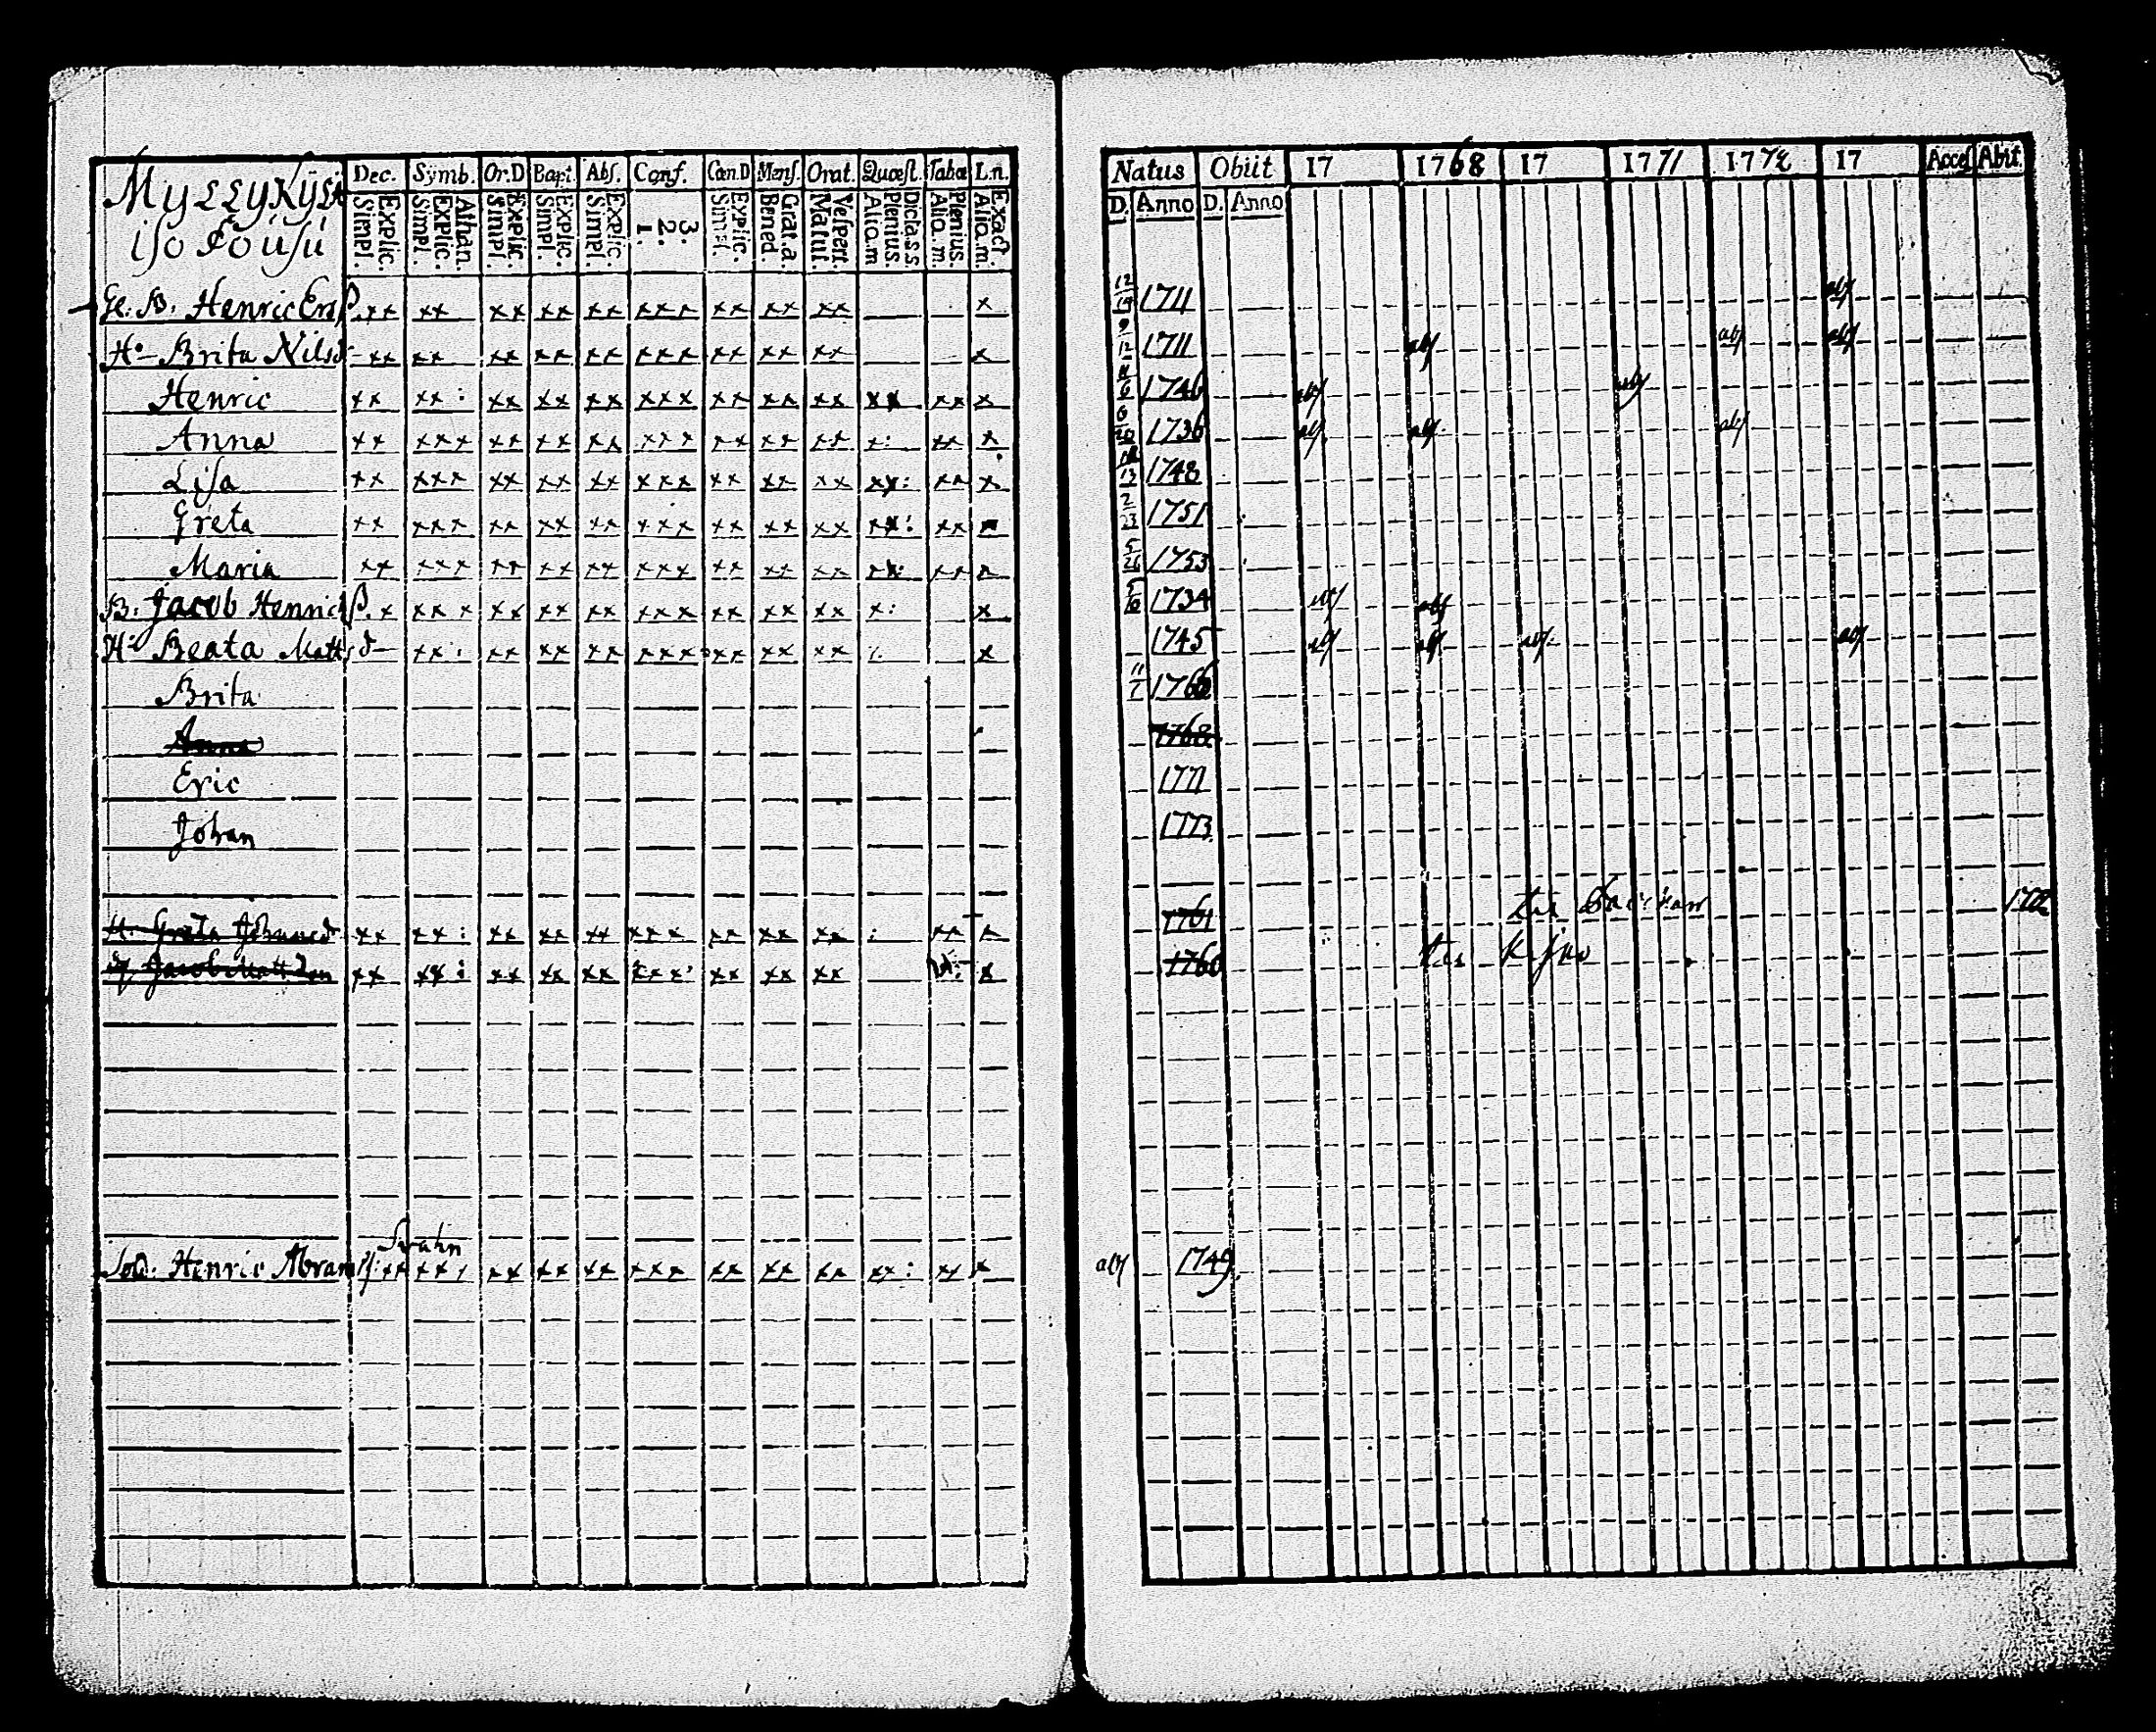 Dec. Sÿmb. Or.D Bapt. Abſ. Conf. Cœn.D Menſ. Orat. Quœſt. Tabœ L.n.
Explic. Simpl. Athan. Explic. Simpl. Explic. Simpl. Explic. Simpl. Explic. Simpl. 3. 2. 1. Explic. Simpl. Grat.a. Bened. Veſpert. Matut. Dicta.s.s. Plenius. Aliq.m Plenius. Aliq.m. Exact. Aliq.m.
iſo
Henric xx xx : xx xx xx xxx xx xx xx xx xx x
Natus Obiit 17 1768 17 1771 1772 17 Acceſ Abit.
D. Anno D. Anno
Ge. B. Henric Erſ xx xx xx xx xx xxx xx xx xx x 12/19 1711 abſ
H:- Brita Nilsd xx xx xx xx xx xxx xx xx xx x 9/12 1711 abſ abſ abſ
1746 abſ abſ
Anna xx xxx xx xx xx xxx xx xx xx x: xx x 6/20 1736 abſ abſ abſ
Liſa xx xxx xx xx xx xxx xx xx xx xx: xx x 1748
Greta xx xxx xx xx xx xxx xx xx xx xx: xx x 2/23 1751
Maria xx xxx xx xx xx xxx xx xx xx xx: xx x 5/26 1753
B. Jacob Henricſ x xxx xx xx xx xxx xx xx xx x: x 5/10 1734 abſ abſ
H: Beata Mattsd xx: xx xx xx xxx xx xx xx x 1745 abſ abſ abſ abſ
Brita 11/1 1766
Anna 1768
Eric 1771
Johan 1773
H. Greta Johansd xx xx: xx xx xx xxx xx xx xx : xx x 1761 1782
Jacob Mattson xx xx: xx xx xx xxx xx xx xx x 1760
Svahn
Sold. Henric Abramſ: xx xxx xx xx xx xxx xx xx xx xx: xx x abſ 1749